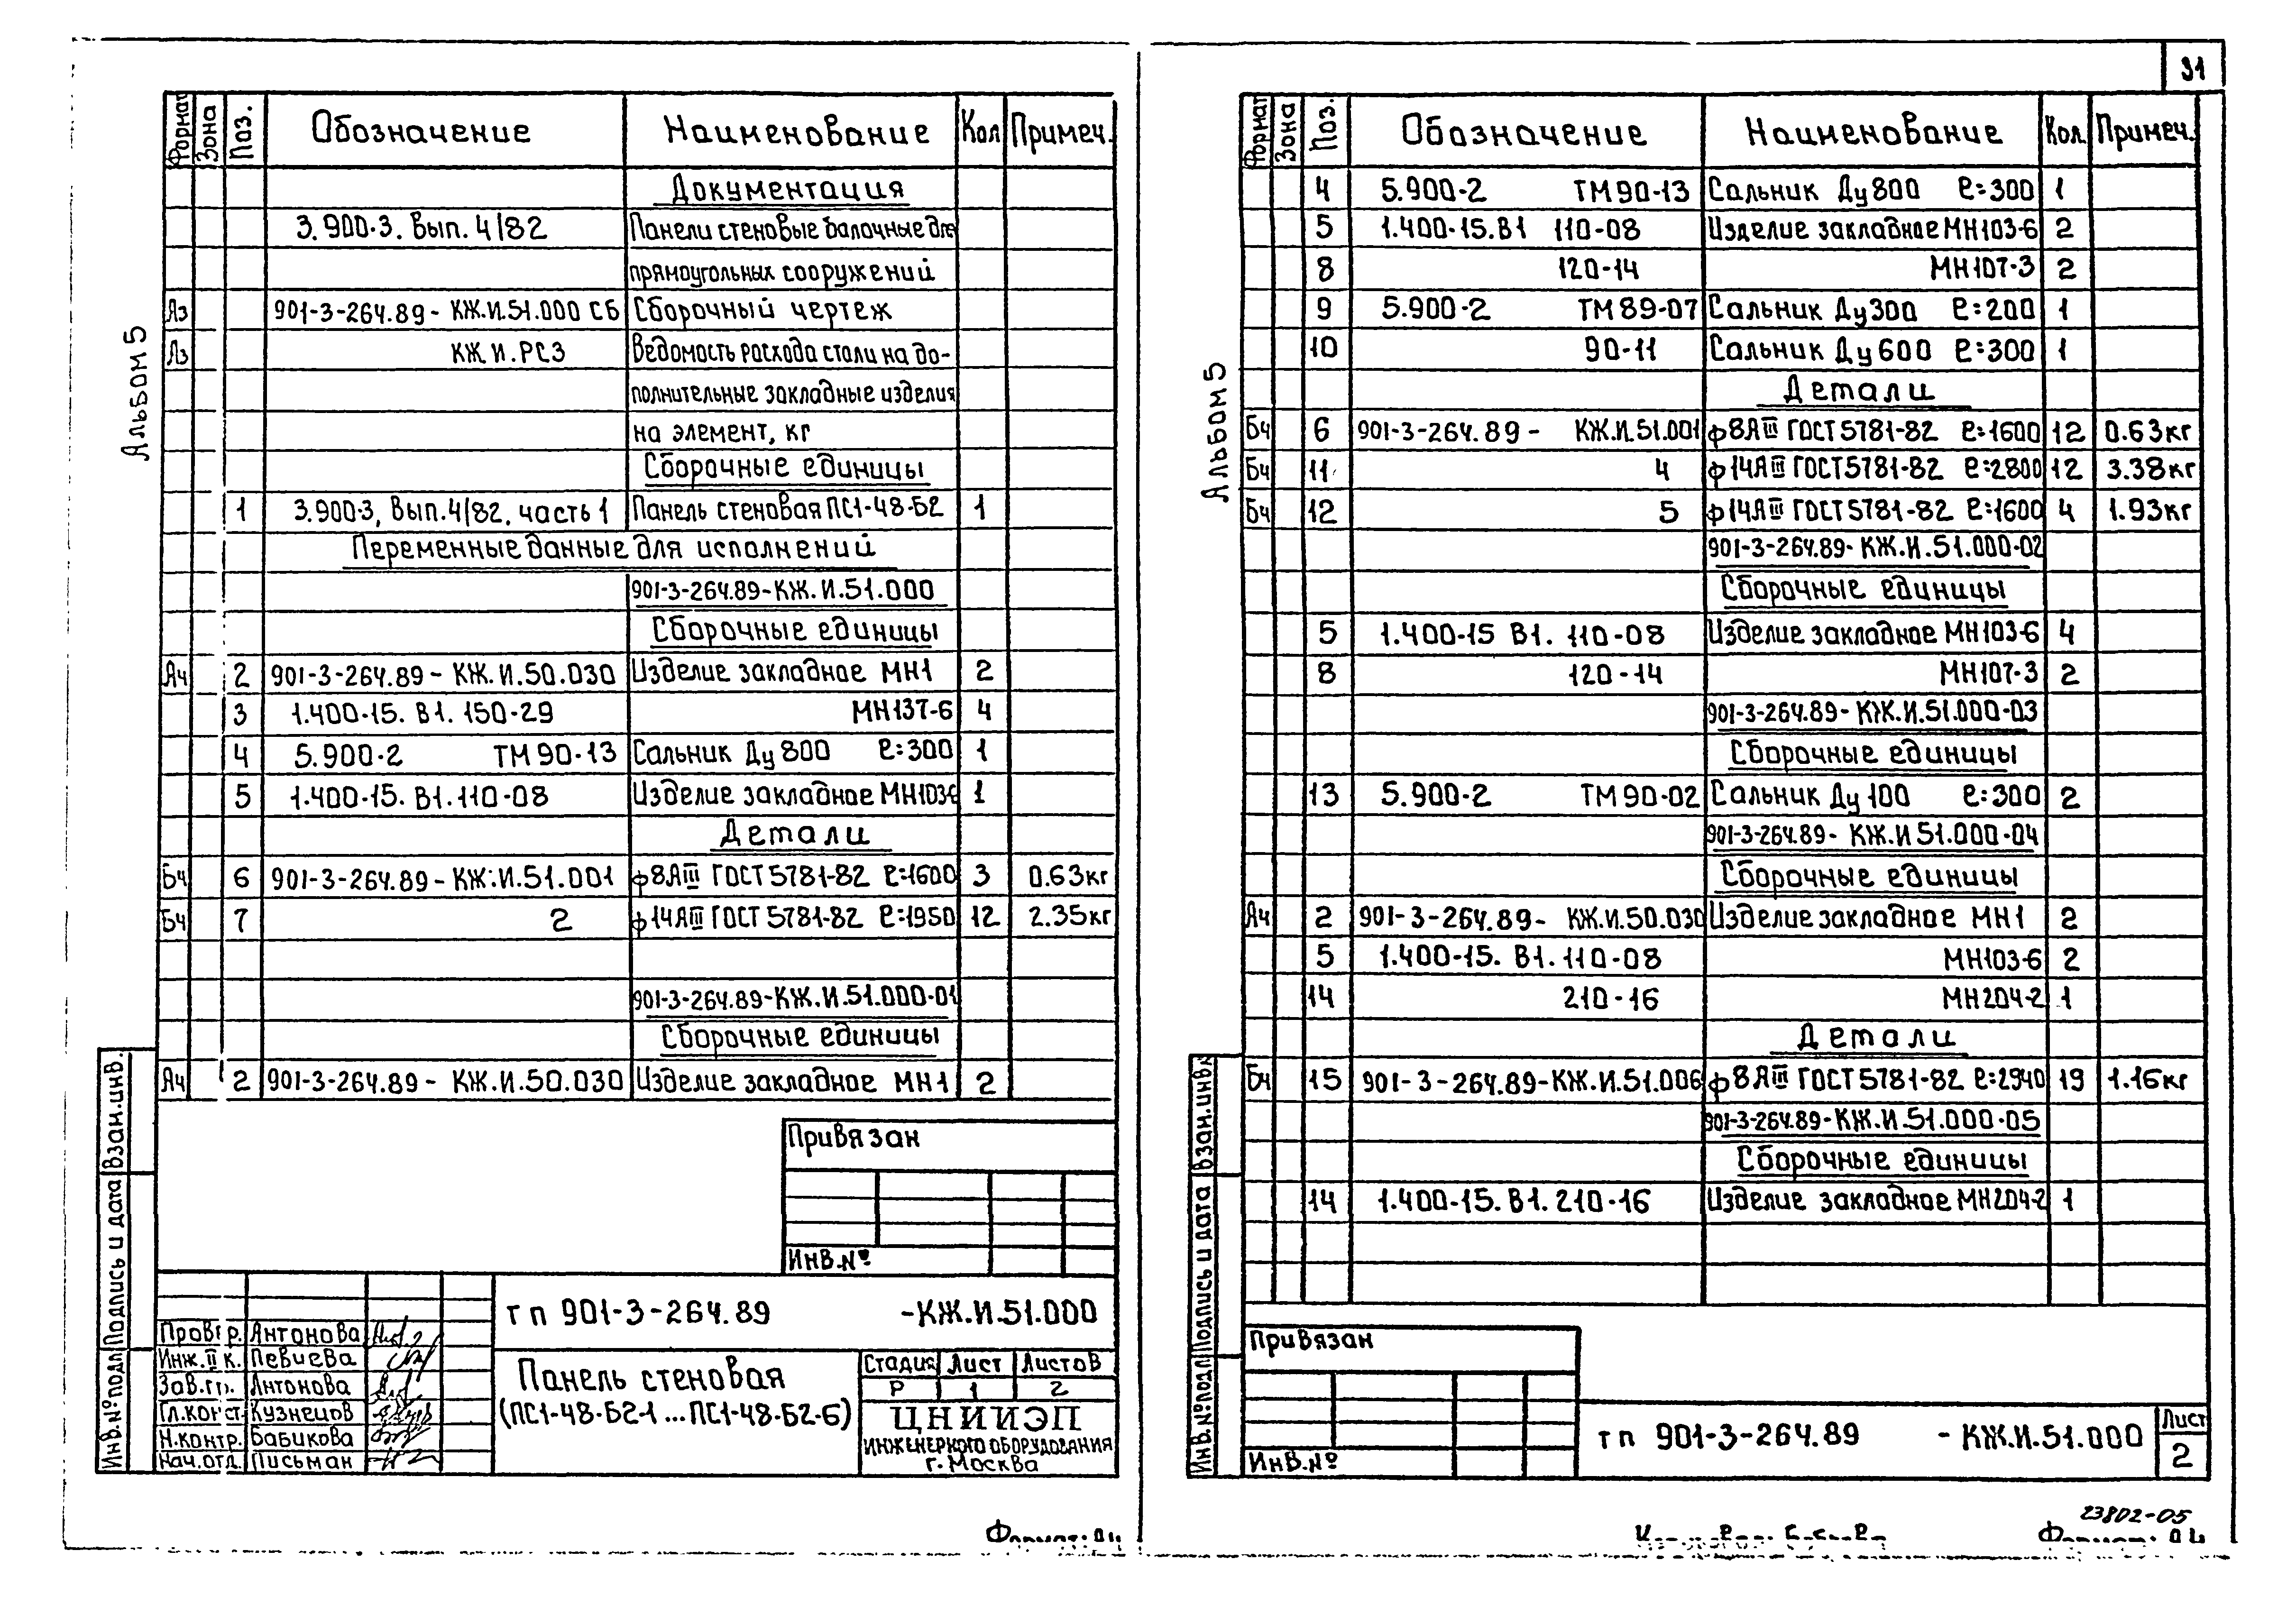 Альбом 5
Формат Зона Поз. Обозначение Наименование Кол Примеч.
Документация
3.900-3. Вып. 4/82 Панели стеновые балочные для
прямоугольных сооружений
А3 901-3-264.89- КЖ.И.51.000 СБ Сборочный чертеж
А3 КЖ И.РС3 Ведомость расхода стали на до-
полнительные закладные изделия
на элемент, кг
Сборочные единицы
1 3.900-3, Вып.4/82, часть 1 Панель стеновая ПС1-48-Б2 1
Переменные данные для исполнений
901-3-264.89-КЖ.И.51.000
Сборочные единицы
А4 2 901-3-264.89- КЖ.И.50.030 Изделие закладное МН1 2
3 1.400-15. В1. 150-29 МН137-6 4
4 5.900-2 ТМ 90-13 Сальник Ду 800 ℓ=300 1
5 1.400-15. В1.110-08 Изделие закладное МН103-6 1
Детали
БЧ 6 901-3-264.89-КЖ.И.51.001 ф8АIII ГОСТ 5781-82 ℓ=1600 3 0.63кг
БЧ 7 2 ф14АIII ГОСТ 5781-82 ℓ=1950 12 2.35кг
901-3-264.89-КЖ.И.51.000-01
Сборочные единицы
А4 2 901-3-264.89- КЖ.И.50.030 Изделие закладное МН1 2
Привязан
Инв.№
Инв.№ подл Подпись и дата Взам.инв.
тп 901-3-264.89 -КЖ.И.51.000
Провер. Антонова
Инж.II к. Певчева
Зав.гр. Антонова
Гл.конст. Кузнецов
Н.контр. Бабикова
Нач.отд. Письман
Панель стеновая
(ПС1-48-Б2-1...ПС1-48-Б2-6)
Стадия Лист Листов
Р 1 2
ЦНИИЭП
ИНЖЕНЕРНОГО ОБОРУДОВАНИЯ
г. Москва
Формат: А4
31
Альбом 5
Формат Зона Поз. Обозначение Наименование Кол. Примеч.
4 5.900-2 ТМ 90-13 Сальник Ду 800 ℓ=300 1
5 1.400-15.В1 110-08 Изделие закладное МН103-6 2
8 120-14 МН107-3 2
9 5.900-2 ТМ 89-07 Сальник Ду 300 ℓ=200 1
10 90-11 Сальник Ду 600 ℓ=300 1
Детали
БЧ 6 901-3-264.89 - КЖ.И.51.001 ф8АIII ГОСТ 5781-82 ℓ=1600 12 0.63кг
БЧ 11 4 ф14АIII ГОСТ 5781-82 ℓ=2800 12 3.38кг
БЧ 12 5 ф14АIII ГОСТ 5781-82 ℓ=1600 4 1.93кг
901-3-264.89- КЖ.И.51.000-02
Сборочные единицы
5 1.400-15 В1. 110-08 Изделие закладное МН103-6 4
8 120-14 МН107-3 2
901-3-264.89- КЖ.И.51.000-03
Сборочные единицы
13 5.900-2 ТМ 90-02 Сальник Ду 100 ℓ=300 2
901-3-264.89- КЖ.И 51.000-04
Сборочные единицы
А4 2 901-3-264.89- КЖ.И.50.030 Изделие закладное МН1 2
5 1.400-15. В1.110-08 МН103-6 2
14 210-16 МН204-2 1
Детали
БЧ 15 901-3-264.89-КЖ.И.51.006 ф8АIII ГОСТ 5781-82 ℓ=2940 19 1.16кг
901-3-264.89-КЖ.И.51.000-05
Сборочные единицы
14 1.400-15. В1. 210-16 Изделие закладное МН204-2 1
Инв.№ подл Подпись и дата Взам.инв.№
Привязан
Инв.№
тп 901-3-264.89 - КЖ.И.51.000
Лист
2
23802-05
Формат: А4